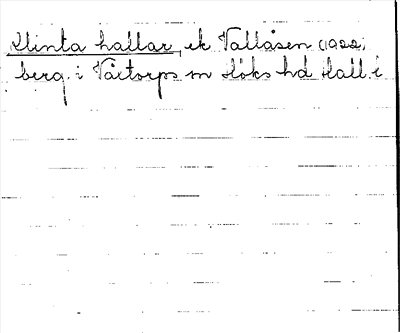 Klinta hallar, ek Vallåsen (1922,
berg i Våxtorps sn Höks hd Hall. i